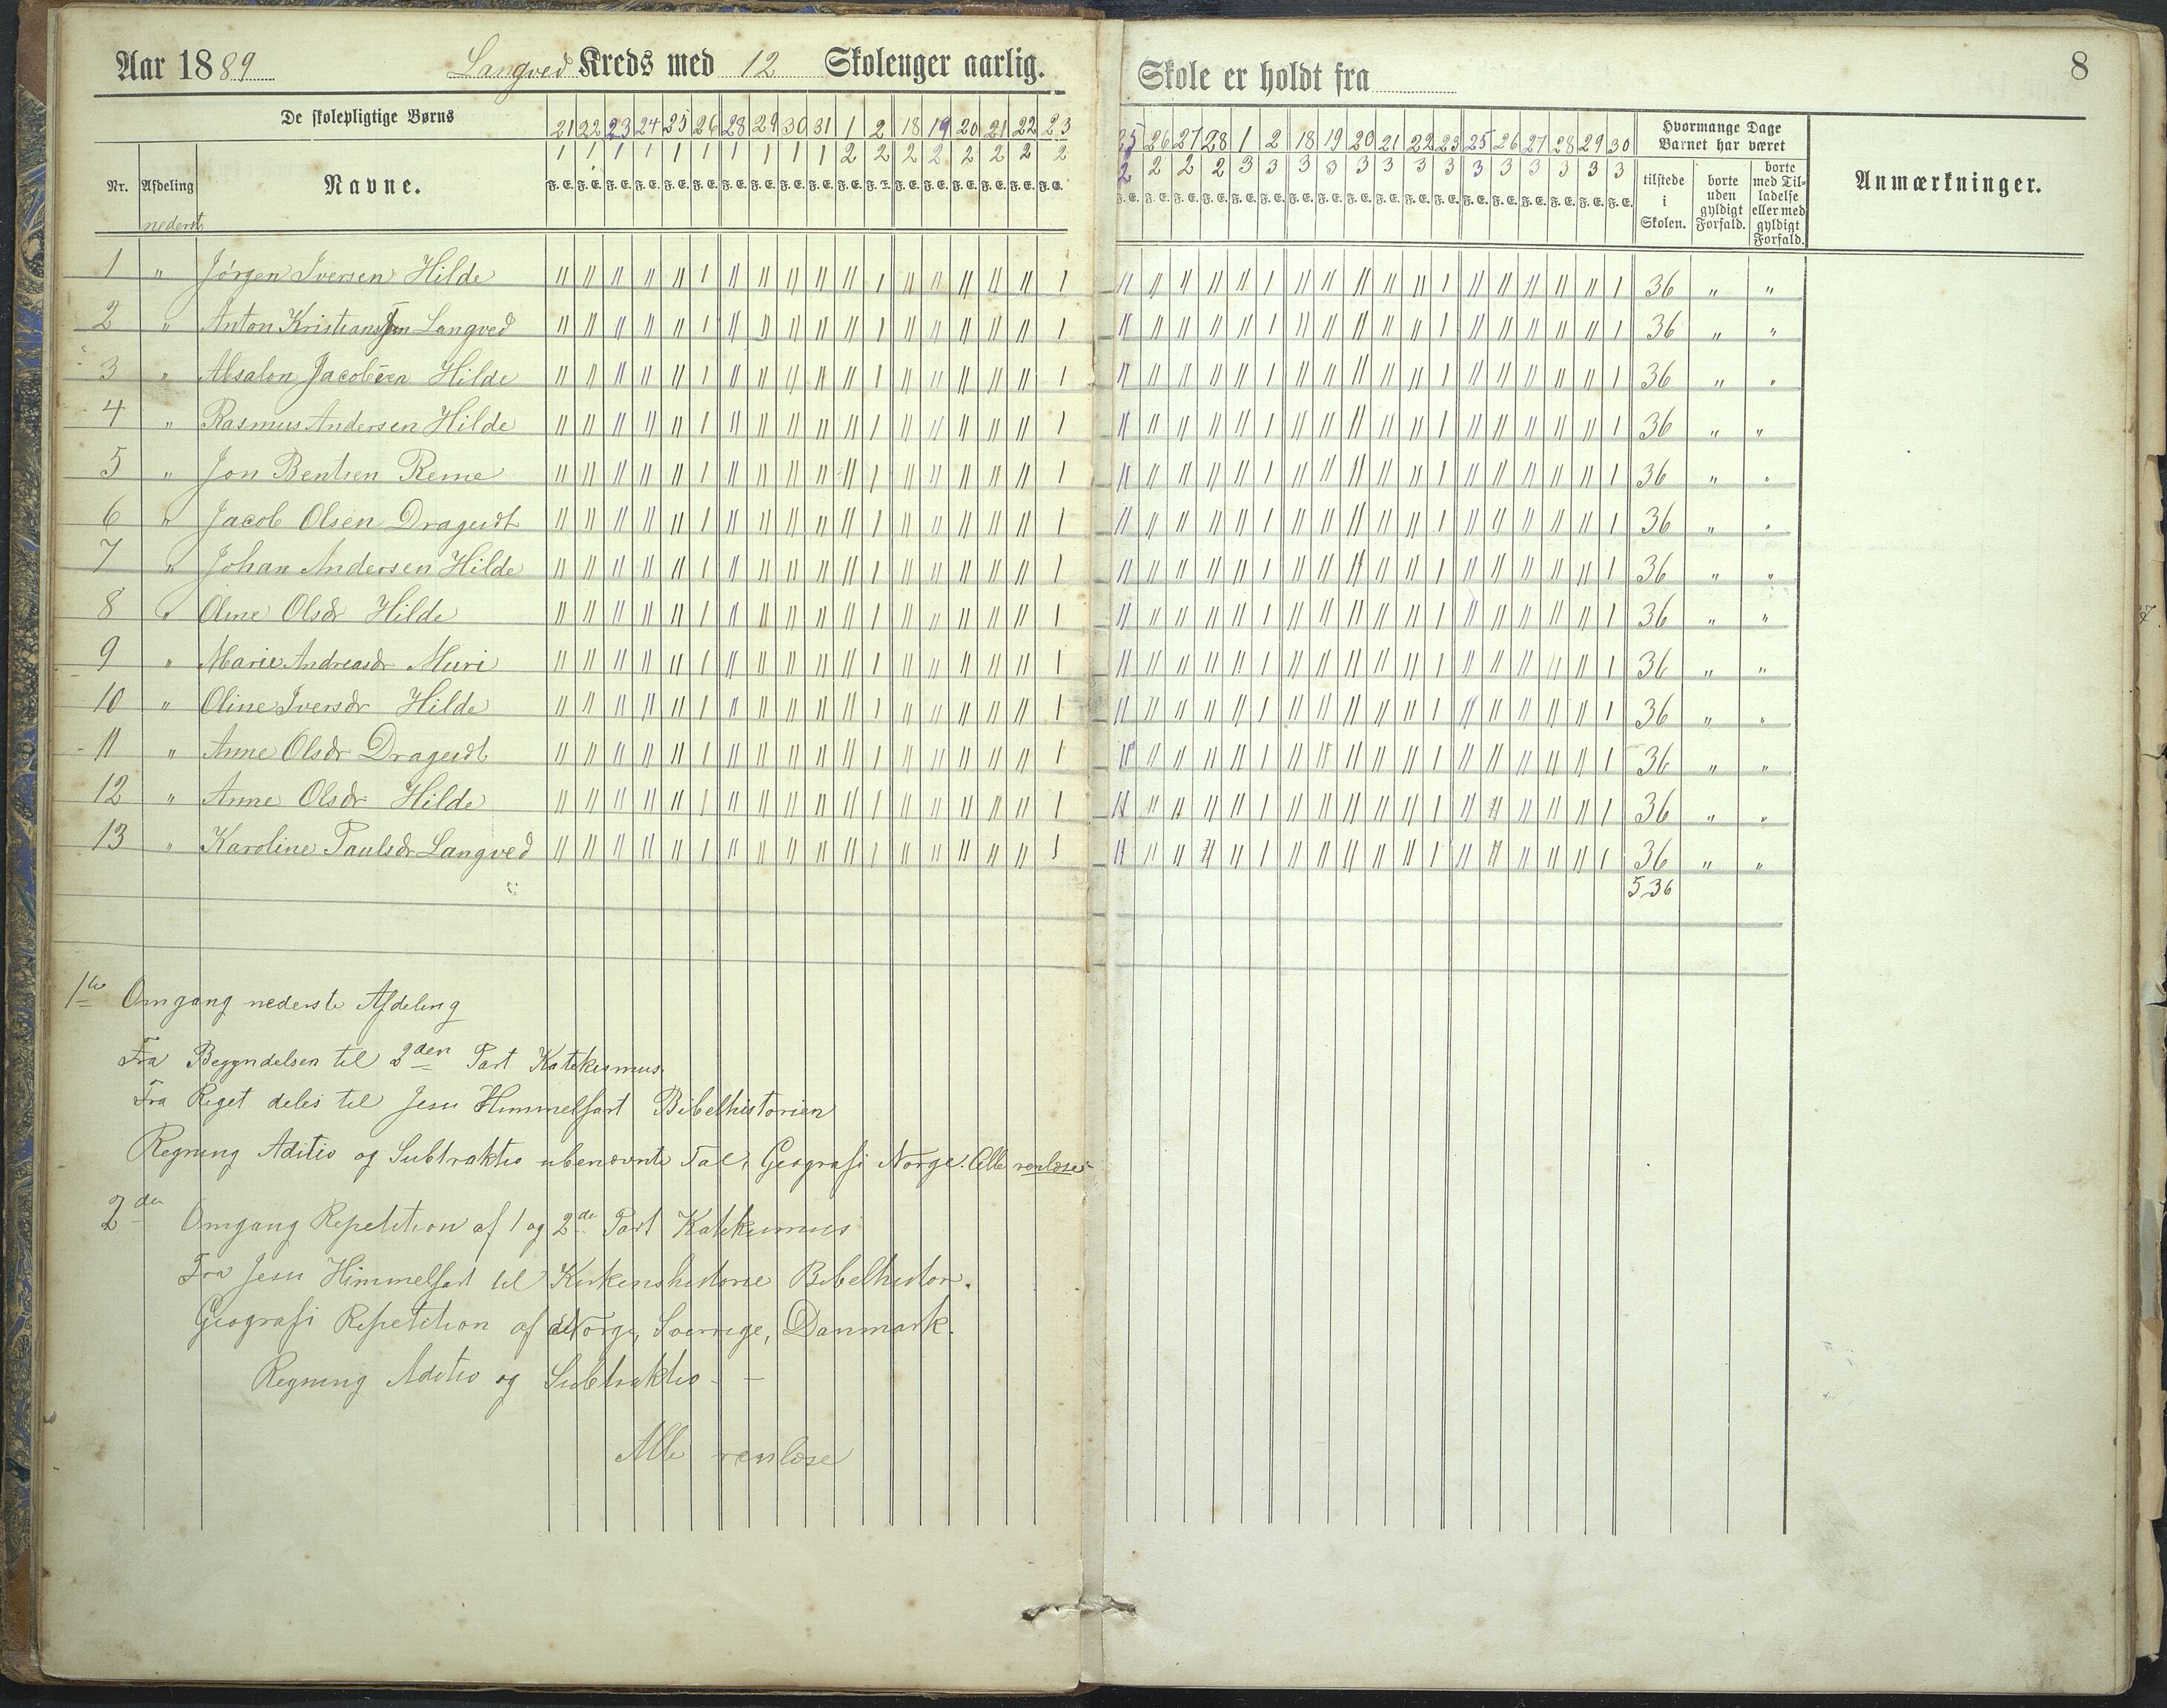 Aar 1889 Langved Kreds med 12 Skoleuger aarlig.
Skole er holdt fra
8
De skolepligtige Børns
21 22 23 24 25 26 28 29 30 31 1 2 18 19 20 21 22 23
1 1 1 1 1 1 1 1 1 1 2 2 2 2 2 2 2 2
Nr. Afdeling Navne.
F. E. F. E. F. E. F. E. F. E. F. E. F. E. F. E. F. E. F. E. F. E. F. E. F. E. F. E. F. E. F. E. F. E. F. E.
nederst
25 26 27 28 1 2 18 19 20 21 22 23 25 26 27 28 29 30
2 2 2 2 3 3 3 3 3 3 3 3 3 3 3 3 3 3
F. E. F. E. F. E. F. E. F. E. F. E. F. E. F. E. F. E. F. E. F. E. F. E. F. E. F. E. F. E. F. E. F. E. F. E.
Hvormange Dage
Barnet har været
tilstede
i
Skolen.
borte
uden
gyldigt
Forfald.
borte
med Til-
ladelse
eller med
gyldigt
Forfald.
Anmærkninger.
1 " Jørgen Iversen Hilde || || || || || | || || || || || | || || || || || | || || || || || | || || || || || | || || || || || | 36 " "
2 " Anton Kristiansen Langved || || || || || | || || || || || | || || || || || | || || || || || | || || || || || | || || || || || | 36 " "
3 " Absalon Jacobsen Hilde || || || || || | || || || || || | || || || || || | || || || || || | || || || || || | || || || || || | 36 " "
4 " Rasmus Andersen Hilde || || || || || | || || || || || | || || || || || | || || || || || | || || || || || | || || || || || | 36 " "
5 " Jon Bentsen Reme || || || || || | || || || || || | || || || || || | || || || || || | || || || || || | || || || || || | 36 " "
6 " Jacob Olsen Drageidt || || || || || | || || || || || | || || || || || | || || || || || | || || || || || | || || || || || | 36 " "
7 " Johan Andersen Hilde || || || || || | || || || || || | || || || || || | || || || || || | || || || || || | || || || || || | 36 " "
8 " Oline Olsdr Hilde || || || || || | || || || || || | || || || || || | || || || || || | || || || || || | || || || || || | 36 " "
9 " Marie Andreasdr Muri || || || || || | || || || || || | || || || || || | || || || || || | || || || || || | || || || || || | 36 " "
10 " Oline Iversdr Hilde || || || || || | || || || || || | || || || || || | || || || || || | || || || || || | || || || || || | 36 " "
11 " Anne Olsdr Drageidt || || || || || | || || || || || | || || || || || | || || || || || | || || || || || | || || || || || | 36 " "
12 " Anne Olsdr Hilde || || || || || | || || || || || | || || || || || | || || || || || | || || || || || | || || || || || | 36 " "
13 " Karoline Paulsdr Langved || || || || || | || || || || || | || || || || || | || || || || || | || || || || || | || || || || || | 36 " "
536
1te Omgang nederste Afdeling
Fra Begyndelsen til 2den Part Katekismus
Fra Riget deles til Jesu Himmelfart Bibelhistorien
Regning Aditio og Subtraktio ubenævnte Tal, Geografi Norge. Alle renlæse
2den Omgang Repetition af 1 og 2de Part Katekismus
Fra Jesu Himmelfart til Kirkenshistorie Bibelhistor.
Geografi Repetition af Norge, Sverrige, Danmark.
Regning Aditio og Subtraktio - -
Alle renlæse